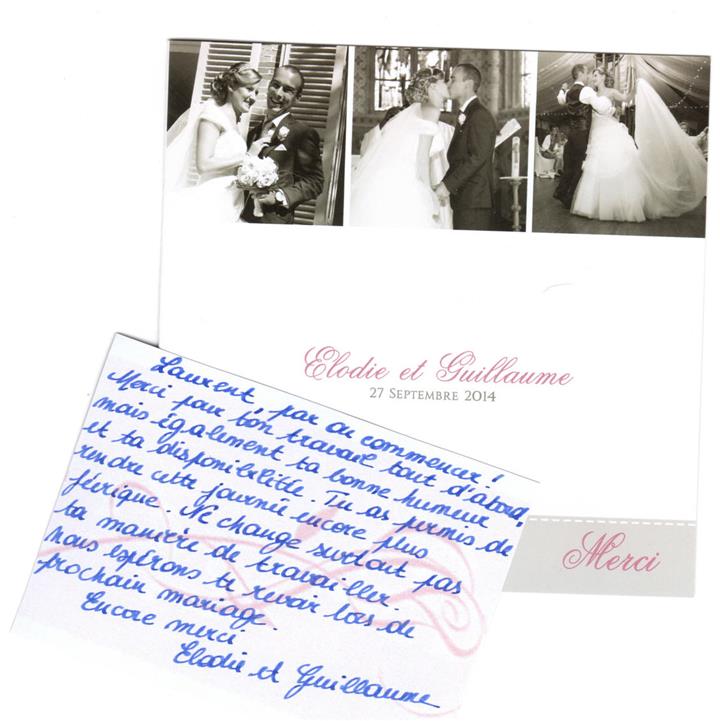 Elodie et Guillaume
27 Septembre 2014
Merci
Laurent, par où commencer !
Merci pour ton travail tout d'abord,
mais également ta bonne humeur
et ta disponibilité. Tu as permis de
rendre cette journée encore plus
féérique. Ne change surtout pas
ta manière de travailler.
nous espérons te revoir lors de
prochain mariage.
Encore merci
Elodie et Guillaume